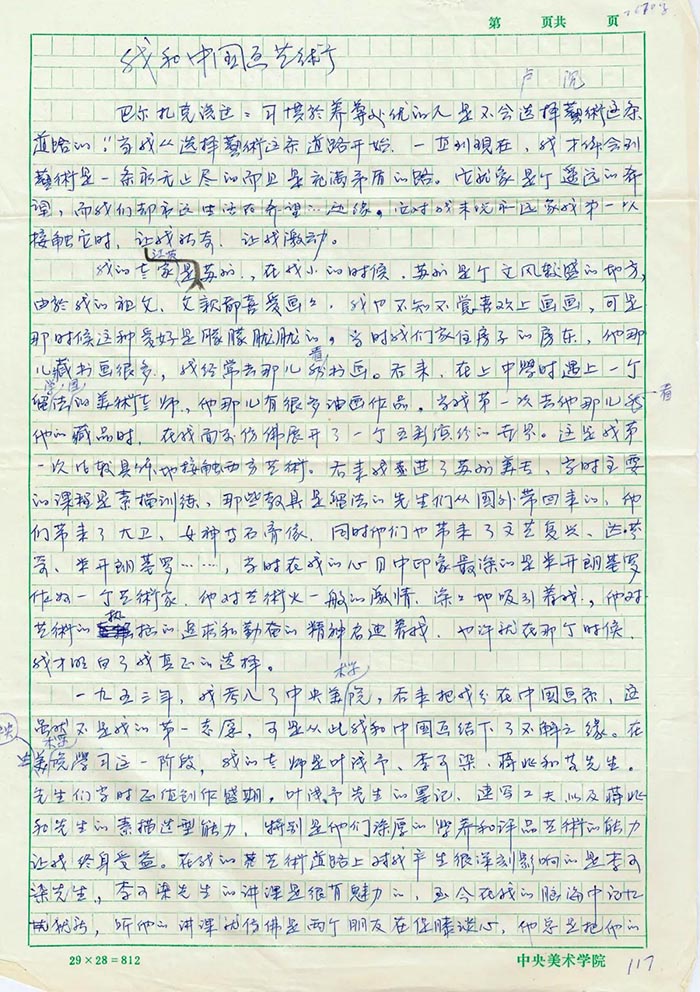 第　页共　页
我和中国画艺術
卢沉
巴尔扎克说过：可惯於养尊处优的人是不会选择藝術这条
道路的！当我从选择藝術这条道路开始，一直到现在，我才体会到
藝術是一条永无止尽的而且是充满矛盾的路。它就象是个遥远的希
望，而我们却永远生活在希望…边缘。它对我来说永远象我第一次
接触它时，让我好奇，让我激动。
我的老家是江苏苏州，在我小的时候，苏州是个文风较盛的地方，
由於我的祖父、父亲都喜爱画，我也不知不觉喜欢上画画，可是
那时候这种爱好是朦朦胧胧的。当时我们家住房子的房东，他那
儿藏书画很多，我经常去那儿看书画。后来，在上中学时遇上一个
留法的美術老师，他那儿有很多油画作品，当我第一次去他那儿看
他的藏品时，在我面前仿佛展开了一个五彩缤纷的世界。这是我第
一次比较具体地接触西方艺術。后来我考进了苏州美专，当时主要
的课程是素描训练，那些教具是留法的先生们从国外带回来的，他
们带来了大卫、女神等石膏像，同时他们也带来了文艺复兴、达·芬
奇、米开朗基罗……，当时在我的心目中印象最深的是米开朗基罗
作为一个艺術家，他对艺術火一般的激情，深深地吸引着我，他对
艺術的执着的追求和勤奋的精神启迪着我，也许就在那个时候，
我才明白了我真正的选择。
一九五三年，我考入了中央美術学院，后来把我分在中国画系，这
虽然不是我的第一志愿，可是从此我和中国画结下了不解之缘。在
美術学院学习这一阶段，我的老师是叶浅予、李可染、蒋兆和等先生。
先生们当时正值创作盛期，叶浅予先生的默记、速写工夫以及蒋兆
和先生的素描造型能力，特别是他们深厚的学养和评品艺術的能力
让我终身受益。在我的艺術道路上对我产生很深刻影响的是李可
染先生，李可染先生的讲课是很有魅力的，至今在我的脑海中记忆
犹新，听他的讲课就仿佛是两个朋友在促膝谈心，他总是把他的
29×28=812
中央美术学院
117